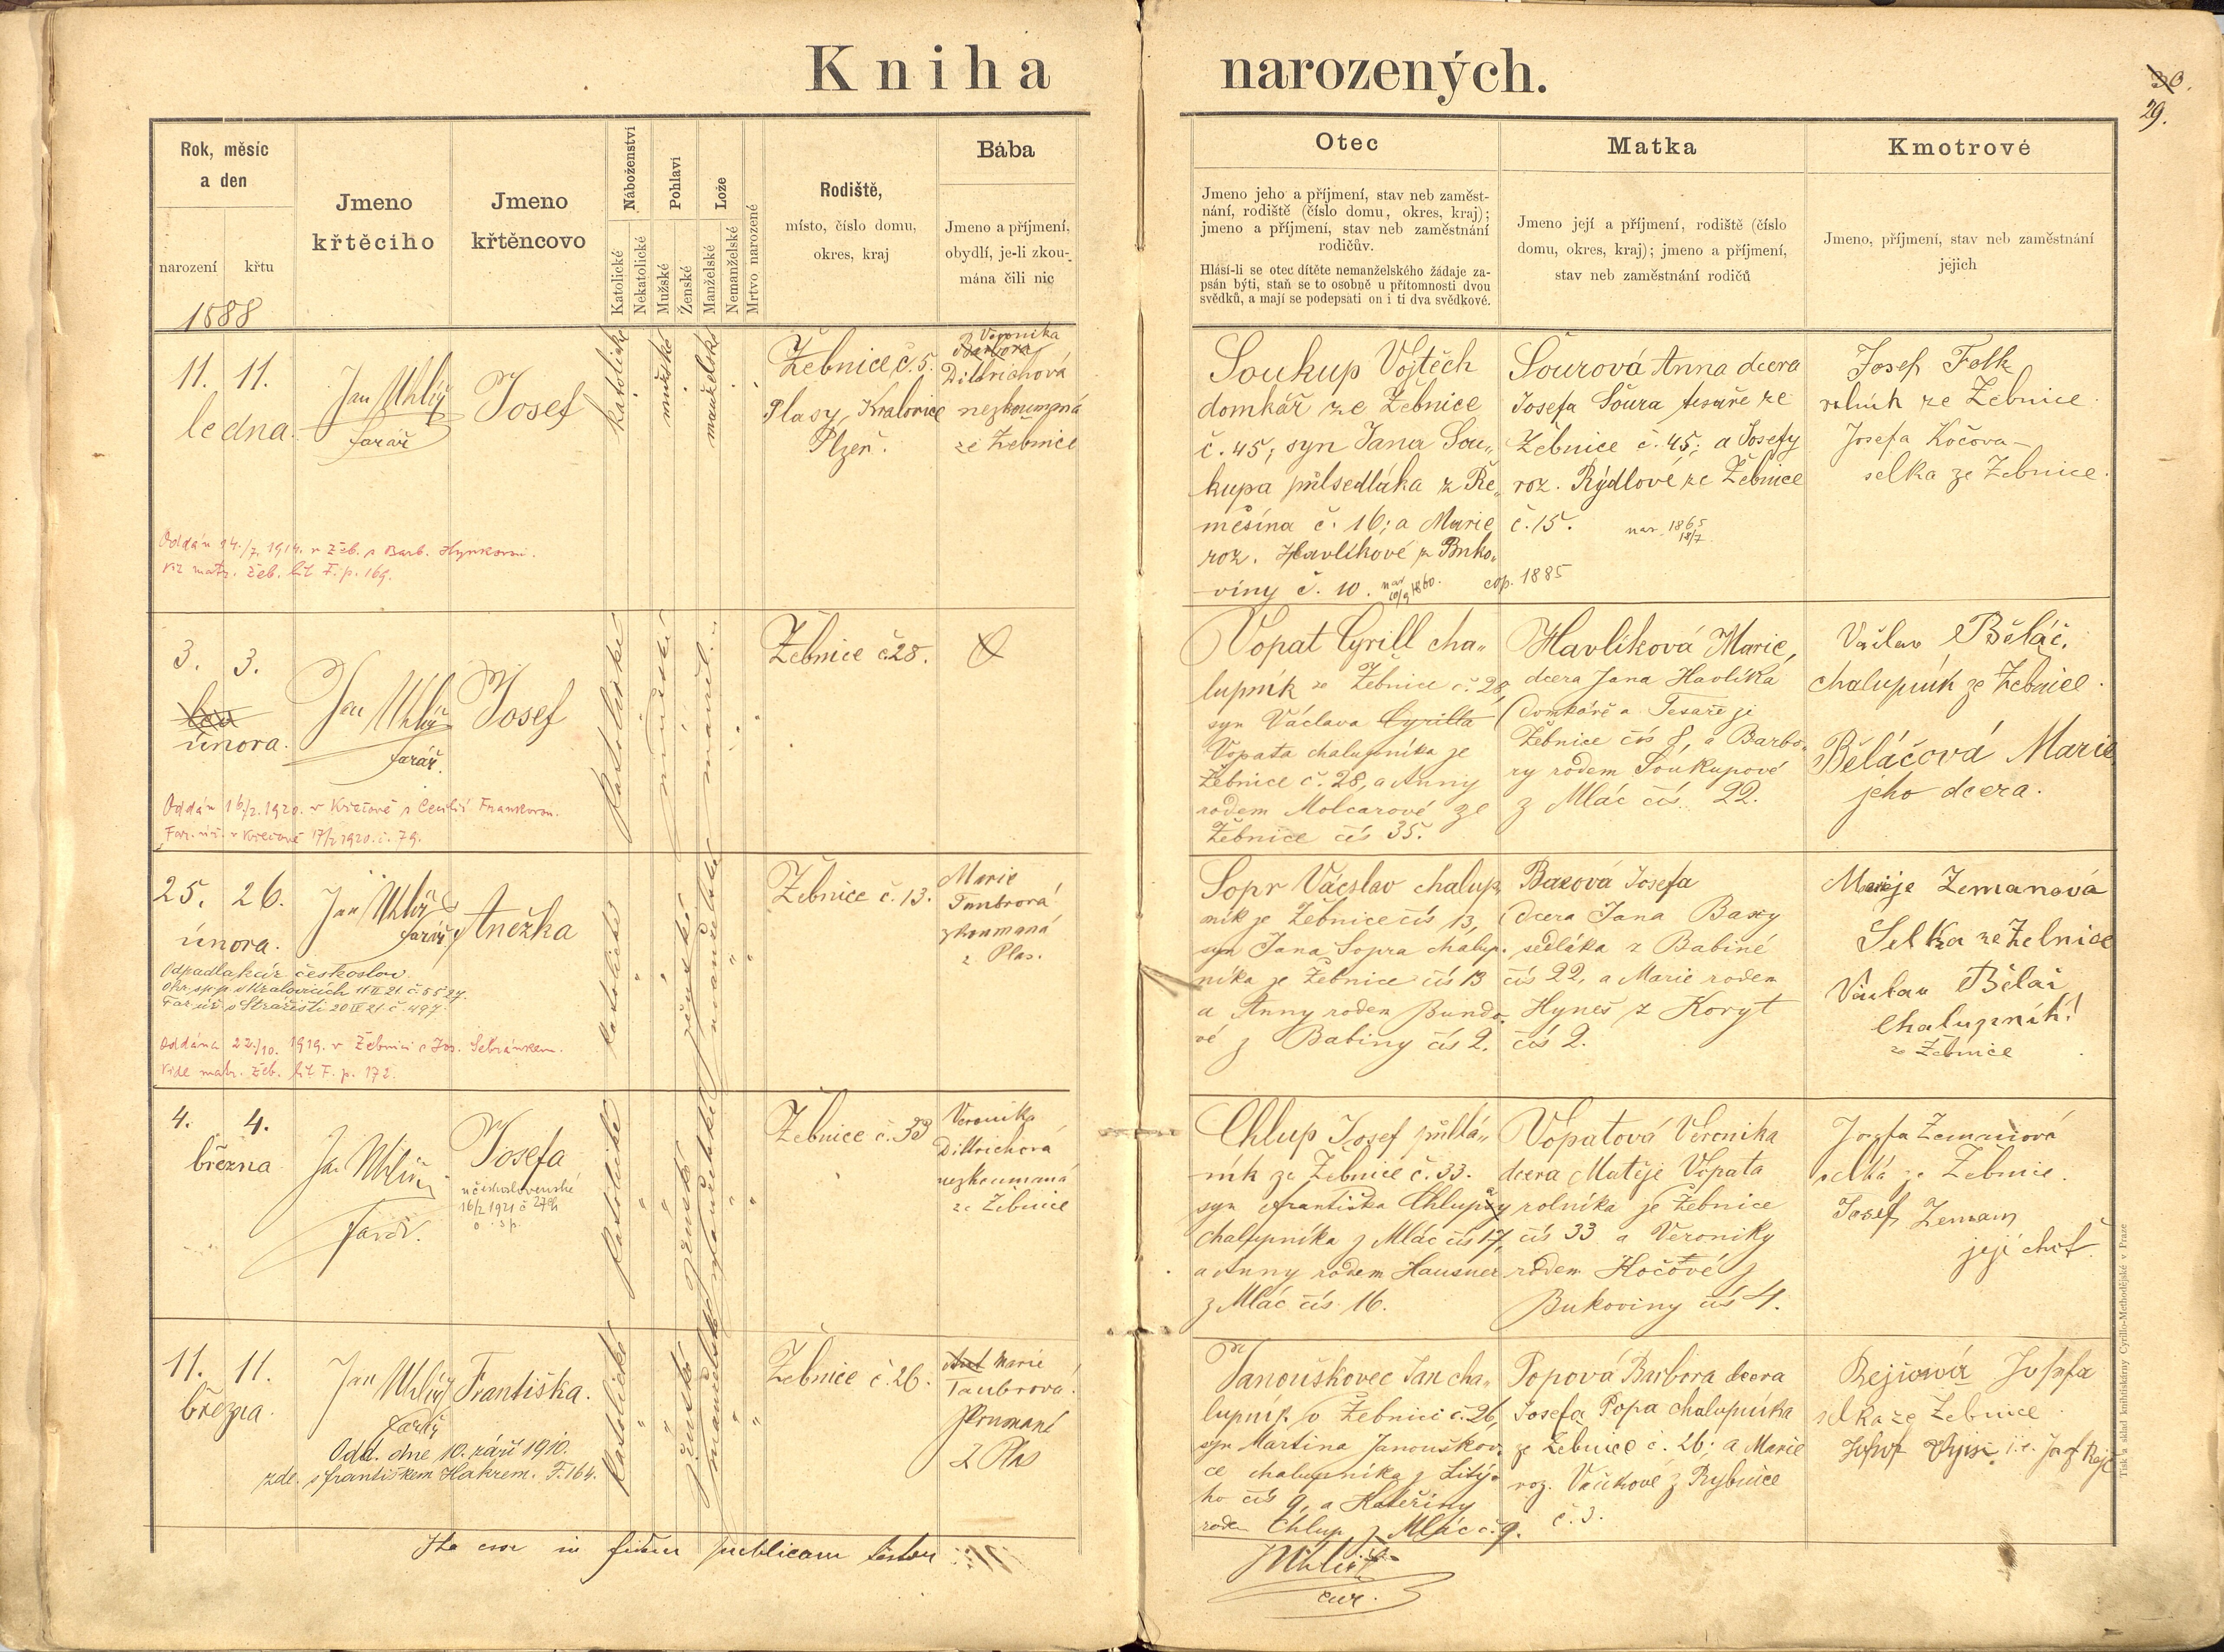 Kniha narozených.
30.
29.
Rok, měsíc
a den
narození
křtu
1888
Jmeno
křtěcího
Jmeno
křtěncovo
Náboženství
Katolické
Nekatolické
Pohlaví
Mužské
Ženské
Lože
Manželské
Nemanželské
Mrtvo narozené
Rodiště,
místo, číslo domu,
okres, kraj
Bába
Jmeno a příjmení,
obydlí, je-li zkou-
mána čili nic
Otec
Jmeno jeho a příjmení, stav neb zaměst-
nání, rodiště (číslo domu, okres, kraj);
jmeno a příjmení, stav neb zaměstnání
rodičův.
Hlásí-li se otec dítěte nemanželského žádaje za-
psán býti, staň se to osobně u přítomnosti dvou
svědků, a mají se podepsati on i ti dva svědkové.
Matka
Jmeno její a příjmení, rodiště (číslo
domu, okres, kraj); jmeno a příjmení,
stav neb zaměstnání rodičů
Kmotrové
Jmeno, příjmení, stav neb zaměstnání
jejich
11. 11.
ledna.
Jan Uhlíř
farář
Josef
katolické
mužské
manželské
Žebnice č. 5.
Plasy, Kralovice
Plzeň.
Veronika
Barbora
Dittrichová
nezkoumaná
ze Žebnice
Soukup Vojtěch
domkář ze Žebnice
č. 45; syn Jana Sou„
kupa půlsedláka z Ře„
měšína č. 16; a Marie
roz. Havlíkové z Buko„
viny č. 10. nar. 10/9 1860. cop. 1885
Šourová Anna dcera
Josefa Šoura tesaře ze
Žebnice č. 45; a Josefy
roz. Rýdlové ze Žebnice
č. 15. nar. 1865 18/7
Josef Folk
rolník ze Žebnice.
Josefa Kočova
selka ze Žebnice.
Oddán 14./7. 1914. v Žeb. s Barb. Hynkovou.
viz matr. žeb. lit F. p. 169.
3. 3.
února.
Jan Uhlíř
farář.
Josef
katolické
mužské
manžel.
Žebnice č. 28.
Vopat Cyrill cha„
lupník ze Žebnice č. 28,
syn Václava Cyrilla
Vopata chalupníka ze
Žebnice č. 28, a Anny
rodem Molcarové ze
Žebnice čís 35.
Havlíková Marie,
dcera Jana Havlíka
domkáře a Tesaře ze
Žebnice čís 8, a Barbo„
ry rodem Soukupové
z Mláč čís. 22.
Václav Běláč,
chalupník ze Žebnice.
Běláčová Marie
jeho dcera.
Oddán 16/2. 1920. v Křečově s Cecilií Frankovou.
Far. úř. v Křečově 17/2 1920. č. 79.
25. 26.
února.
Jan Uhlíř
farář
Anežka
katolické
ženské
manželské
Žebnice č. 13.
Marie
Taubrová
zkoumaná
z Plas.
Sopr Vácslav chalup„
ník ze Žebnice čís 13,
syn Jana Sopra chalup.
níka ze Žebnice čís 13
a Anny rodem Bundo„
vé z Babiny čís 2.
Baxová Josefa
dcera Jana Baxy
sedláka z Babiné
čís 22, a Marie rodem
Hyneš z Koryt
čís 2.
Marije Zemanová
Selka ze Žebnice
Václav Bělač
Chalupník!
ze Žebnice
Odpadla k cír. českoslov.
Okr. sp. p. v Kralovicích 11 II 21. č. 5527.
Far. úř. v Strážišti 20 II 21. č. 497.
Oddána 22./10. 1919. v Žebnici s Jos. Sebránkem.
Vide matr. žeb. lit F. p. 172.
4. 4.
března
Jan Uhlíř
farář.
Josefa
v československé
16/2 1921 č
Žebnice č. 33
Veronika
Dittrichová
nezkoumaná
ze Žebnice
Chlup Josef půllá„
ník ze Žebnice č. 33.
syn Františka Chlupa
chalupníka z Mláč čís 17,
a Anny rodem Hausner
z Mláč čís 16.
Vopatová Veronika
dcera Matěje Vopata
rolníka ze Žebnice
čís 33 a Veroniky
rodem Kočové z
Bukoviny čís 4.
Jozefa Zemanová
selka ze Žebnice.
Josef Zeman
její choť.
11. 11.
března.
Jan Uhlíř
farář
Františka.
katolické
ženské
manželské
Žebnice č. 26.
Marie
Taubrová.
Zkoumaná
z Plas
Janouškovec Jan cha„
lupník v Žebnici č. 26,
syn Martina Janouškov„
ce chalupníka z Lité„
ho čís 9, a Kateřiny
rodem Chlup z Mláč č. 9.
Popová Barbora dcera
Josefa Popa chalupníka
ze Žebnice č. 26; a Marie
roz. Vaňkové z Rybnice
č. 3.
Rejšová Josefa
selka ze Žebnice
Odd. dne 10. září 1910.
zde s Františkem Hakrem. F. 164.
Ita esse in fidem publicam testor
JUhlíř
cur.
Tisk a sklad knihtiskárny Cyrillo-Methodějské v Praze